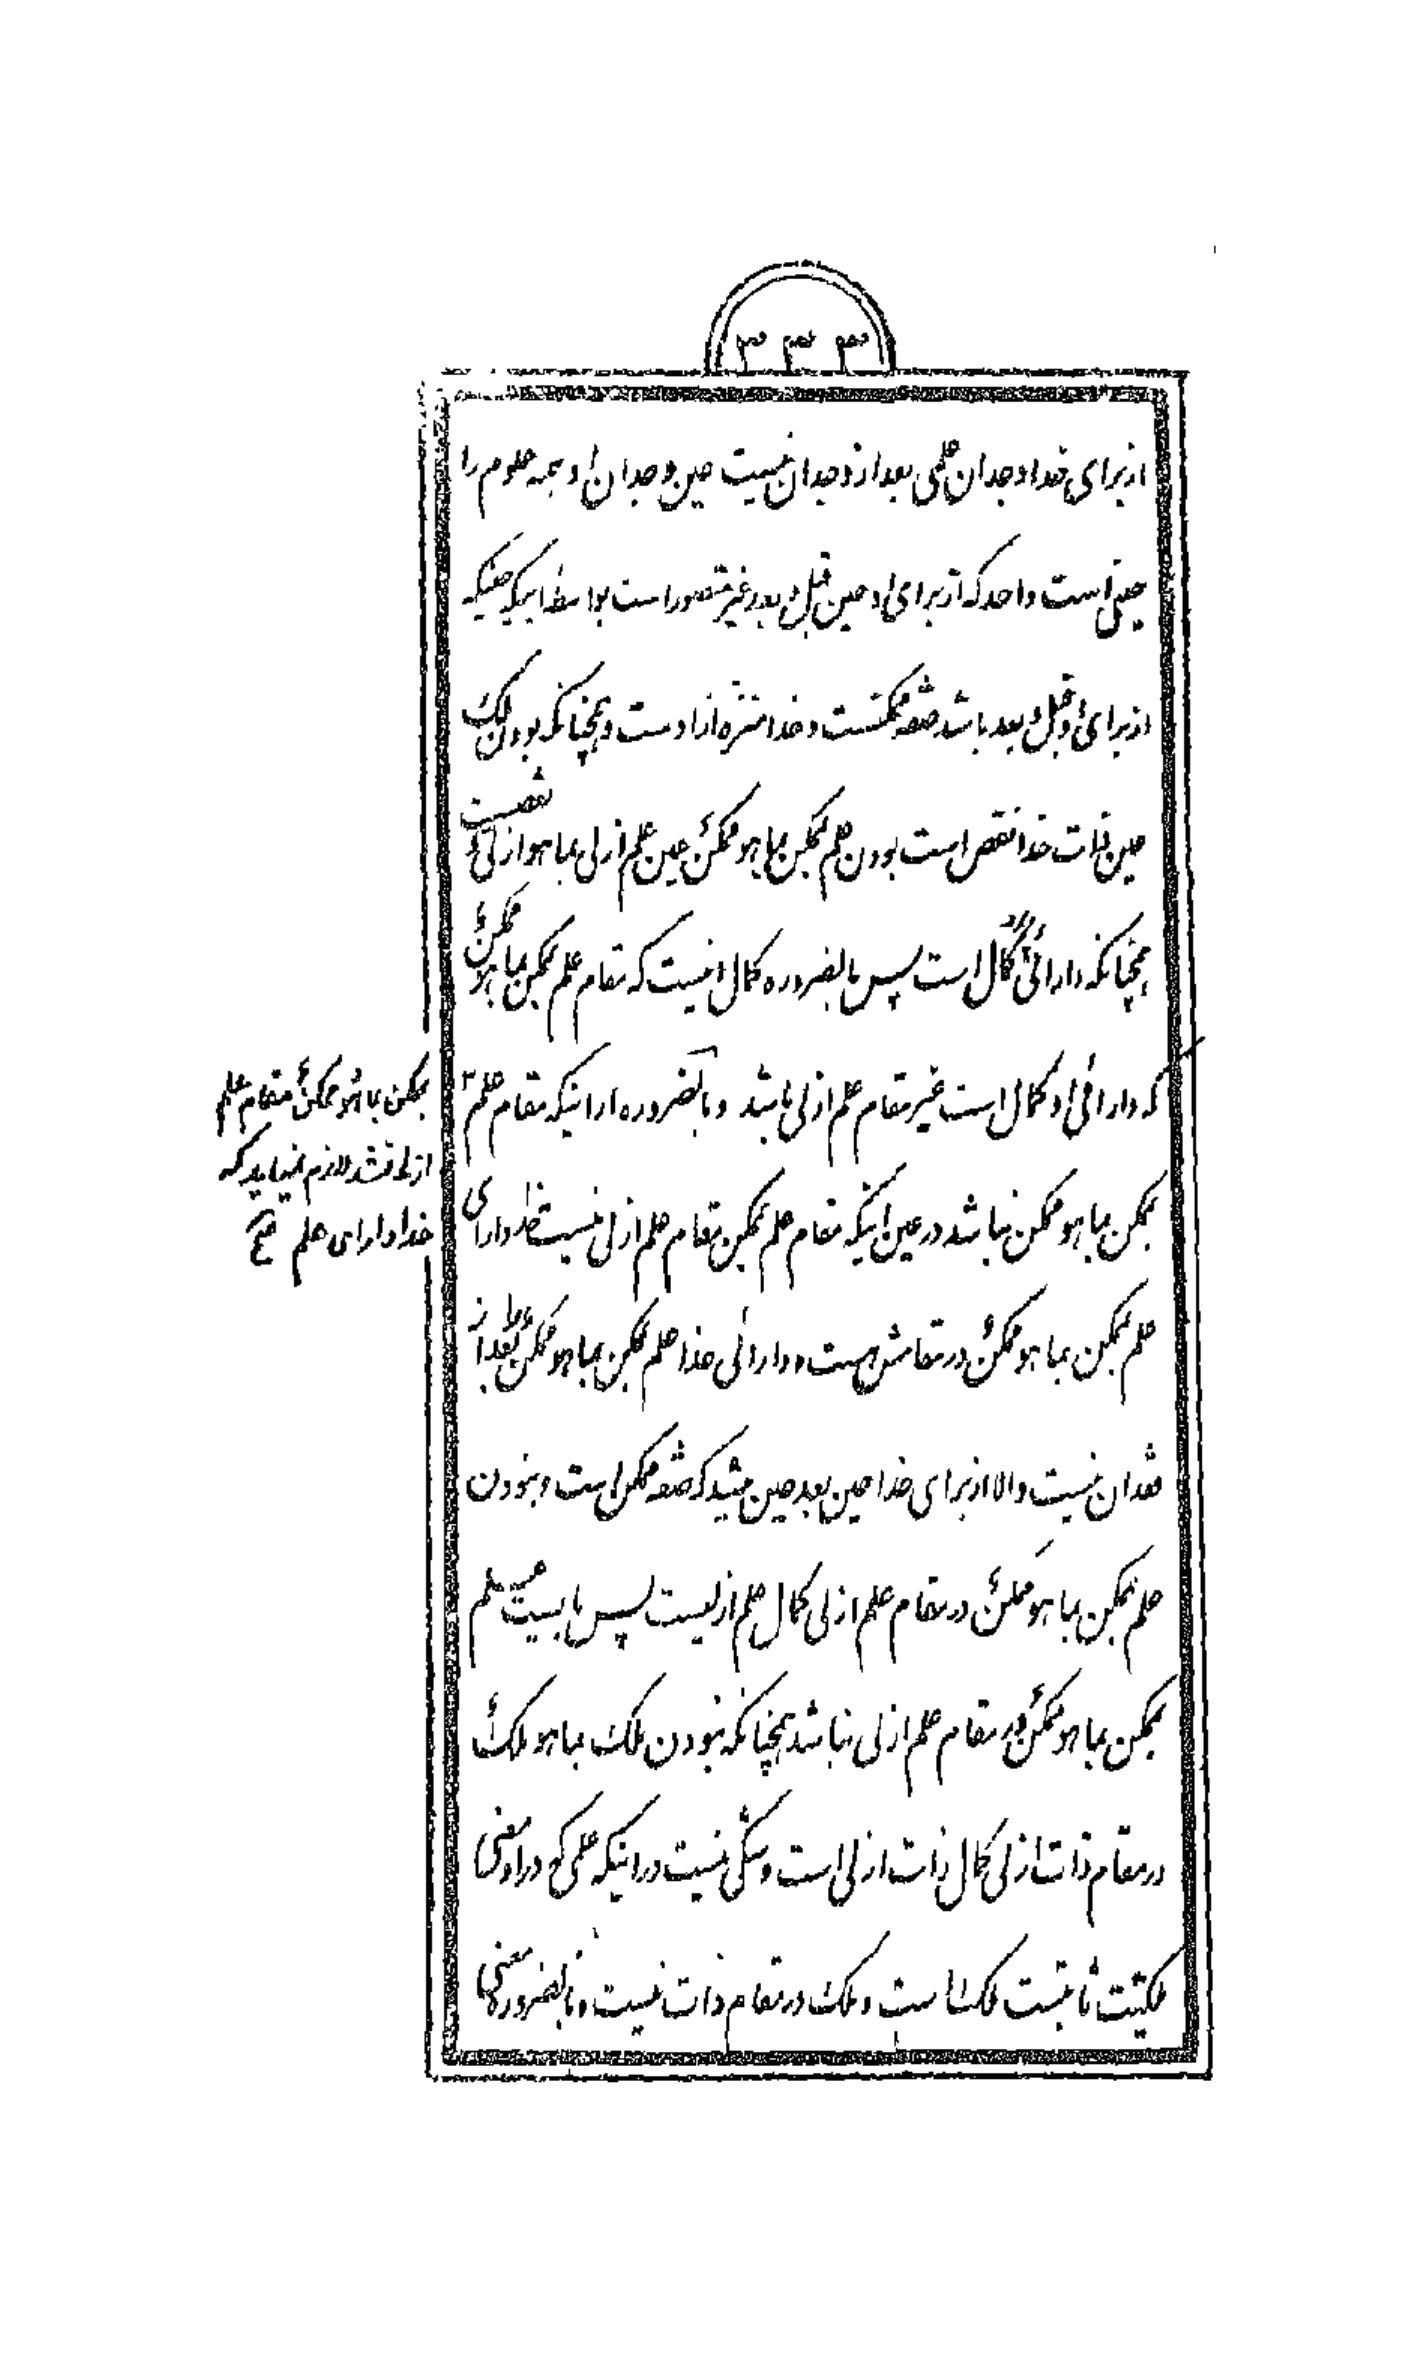 ۳۳۳
از برای خدا وجدان علمی بعد از وجدان نیست حین وجدان او همه علوم را
حینی است واحد که از برای او حین قبل و بعد غیر متصور است بواسطه اینکه حینیکه
از برای او قبل و بعد باشد صفه ممکنست و خدا منزه از اوست و همچنانکه بودن ملک
عین ذات خدا نقص است بودن علم بممکن بما هو ممکن عین علم ازلی بما هو ازلی نقصست
همچنانکه دارائی او کمال است پس بالضروره کمال اینست که مقام علم بممکن بما هو ممکن
که دارائی او کمال است غیر مقام علم ازلی باشد و بالضروره از اینکه مقام علم
بممکن بما هو ممکن مقام علم
ازلی نشد لازم نمیاید که
خدا دارای علم
بممکن بما هو ممکن نباشد در عین اینکه مقام علم بممکن مقام علم ازل نیست خدا دارای
علم بممکن بما هو ممکن در مقامش هست و دارائی خدا علم بممکن بما هو ممکن را بعد از
فقدان نیست والا از برای خدا حین بعد حین میشد که صفه ممکن است و نبودن
علم بممکن بما هو ممکن در مقام علم ازلی کمال علم ازلیست پس بایست علم
بممکن بما هو ممکن در مقام علم ازلی نباشد همچنانکه نبودن ملک بما هو ملک
در مقام ذات ازلی کمال ذات ازلی است و شکی نیست در اینکه علمی که در او معنی
ملکیت ثابتست ملک است و ملک در مقام ذات نیست و بالضروره معنی